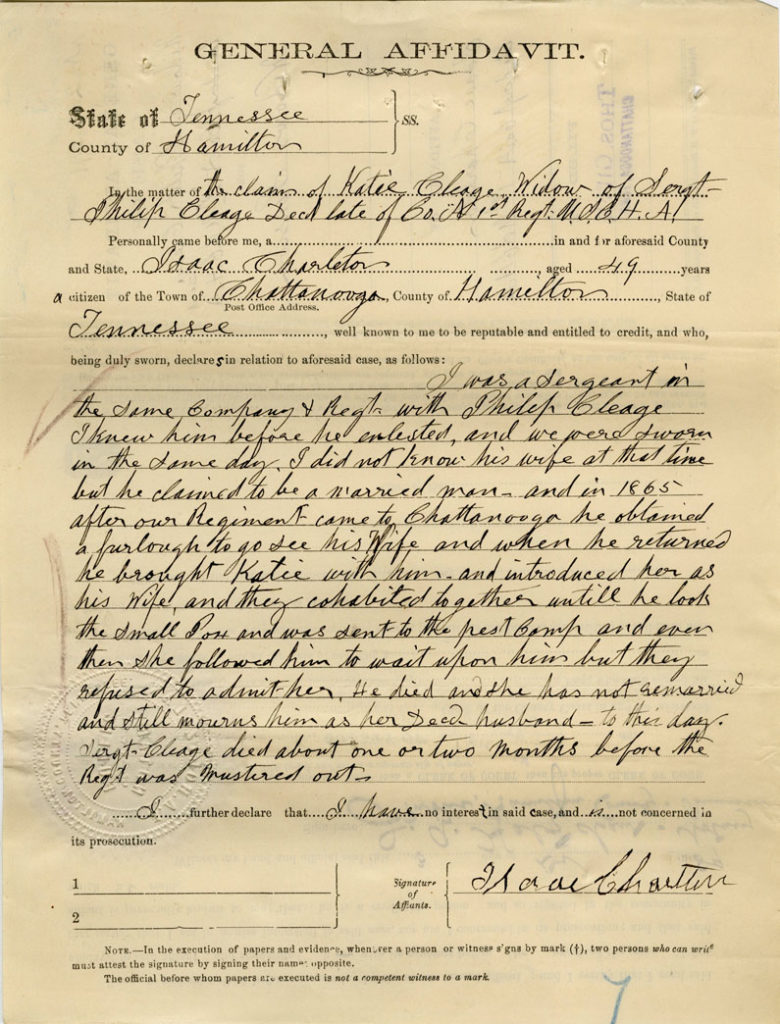 GENERAL AFFIDAVIT.
State of Tennessee
SS.
County of Hamilton
In the matter of the claim of Katie Cleage Widow of Sergt-
Philip Cleage Decd late of Co. "A" 1st Regt. U.S.C.H.A.
Personally came before me, a in and for aforesaid County
and State, Isaac Charleton, aged 49 years
a citizen of the Town of Chattanooga, County of Hamilton, State of
Post Office Address.
Tennessee, well known to me to be reputable and entitled to credit, and who,
being duly sworn, declares in relation to aforesaid case, as follows:
I was a sergeant in
the same Company & Regt. with Philip Cleage
I knew him before he enlested, and we were sworn
in the same day. I did not know his wife at that time
but he claimed to be a married man - and in 1865
after our Regiment came to Chattanooga he obtained
a furlough to go see his Wife and when he returned
he brought Katie with him - and introduced her as
his Wife, and they cohabited together untill he took
the small Pox and was sent to the pest Camp and even
then she followed him to wait upon him but they
refused to admit her. He died and she has not remarried
and still mourns him as her Decd husband - to this day.
Sergt. Cleage died about one or two months before the
Regt was mustered out -
I further declare that I have no interest in said case, and is not concerned in
its prosecution.
1
2
Signature
of
Affiants.
Isaac Charlton
NOTE.—In the execution of papers and evidence, whenever a person or witness signs by mark (†), two persons who can write
must attest the signature by signing their names opposite.
The official before whom papers are executed is not a competent witness to a mark.
7